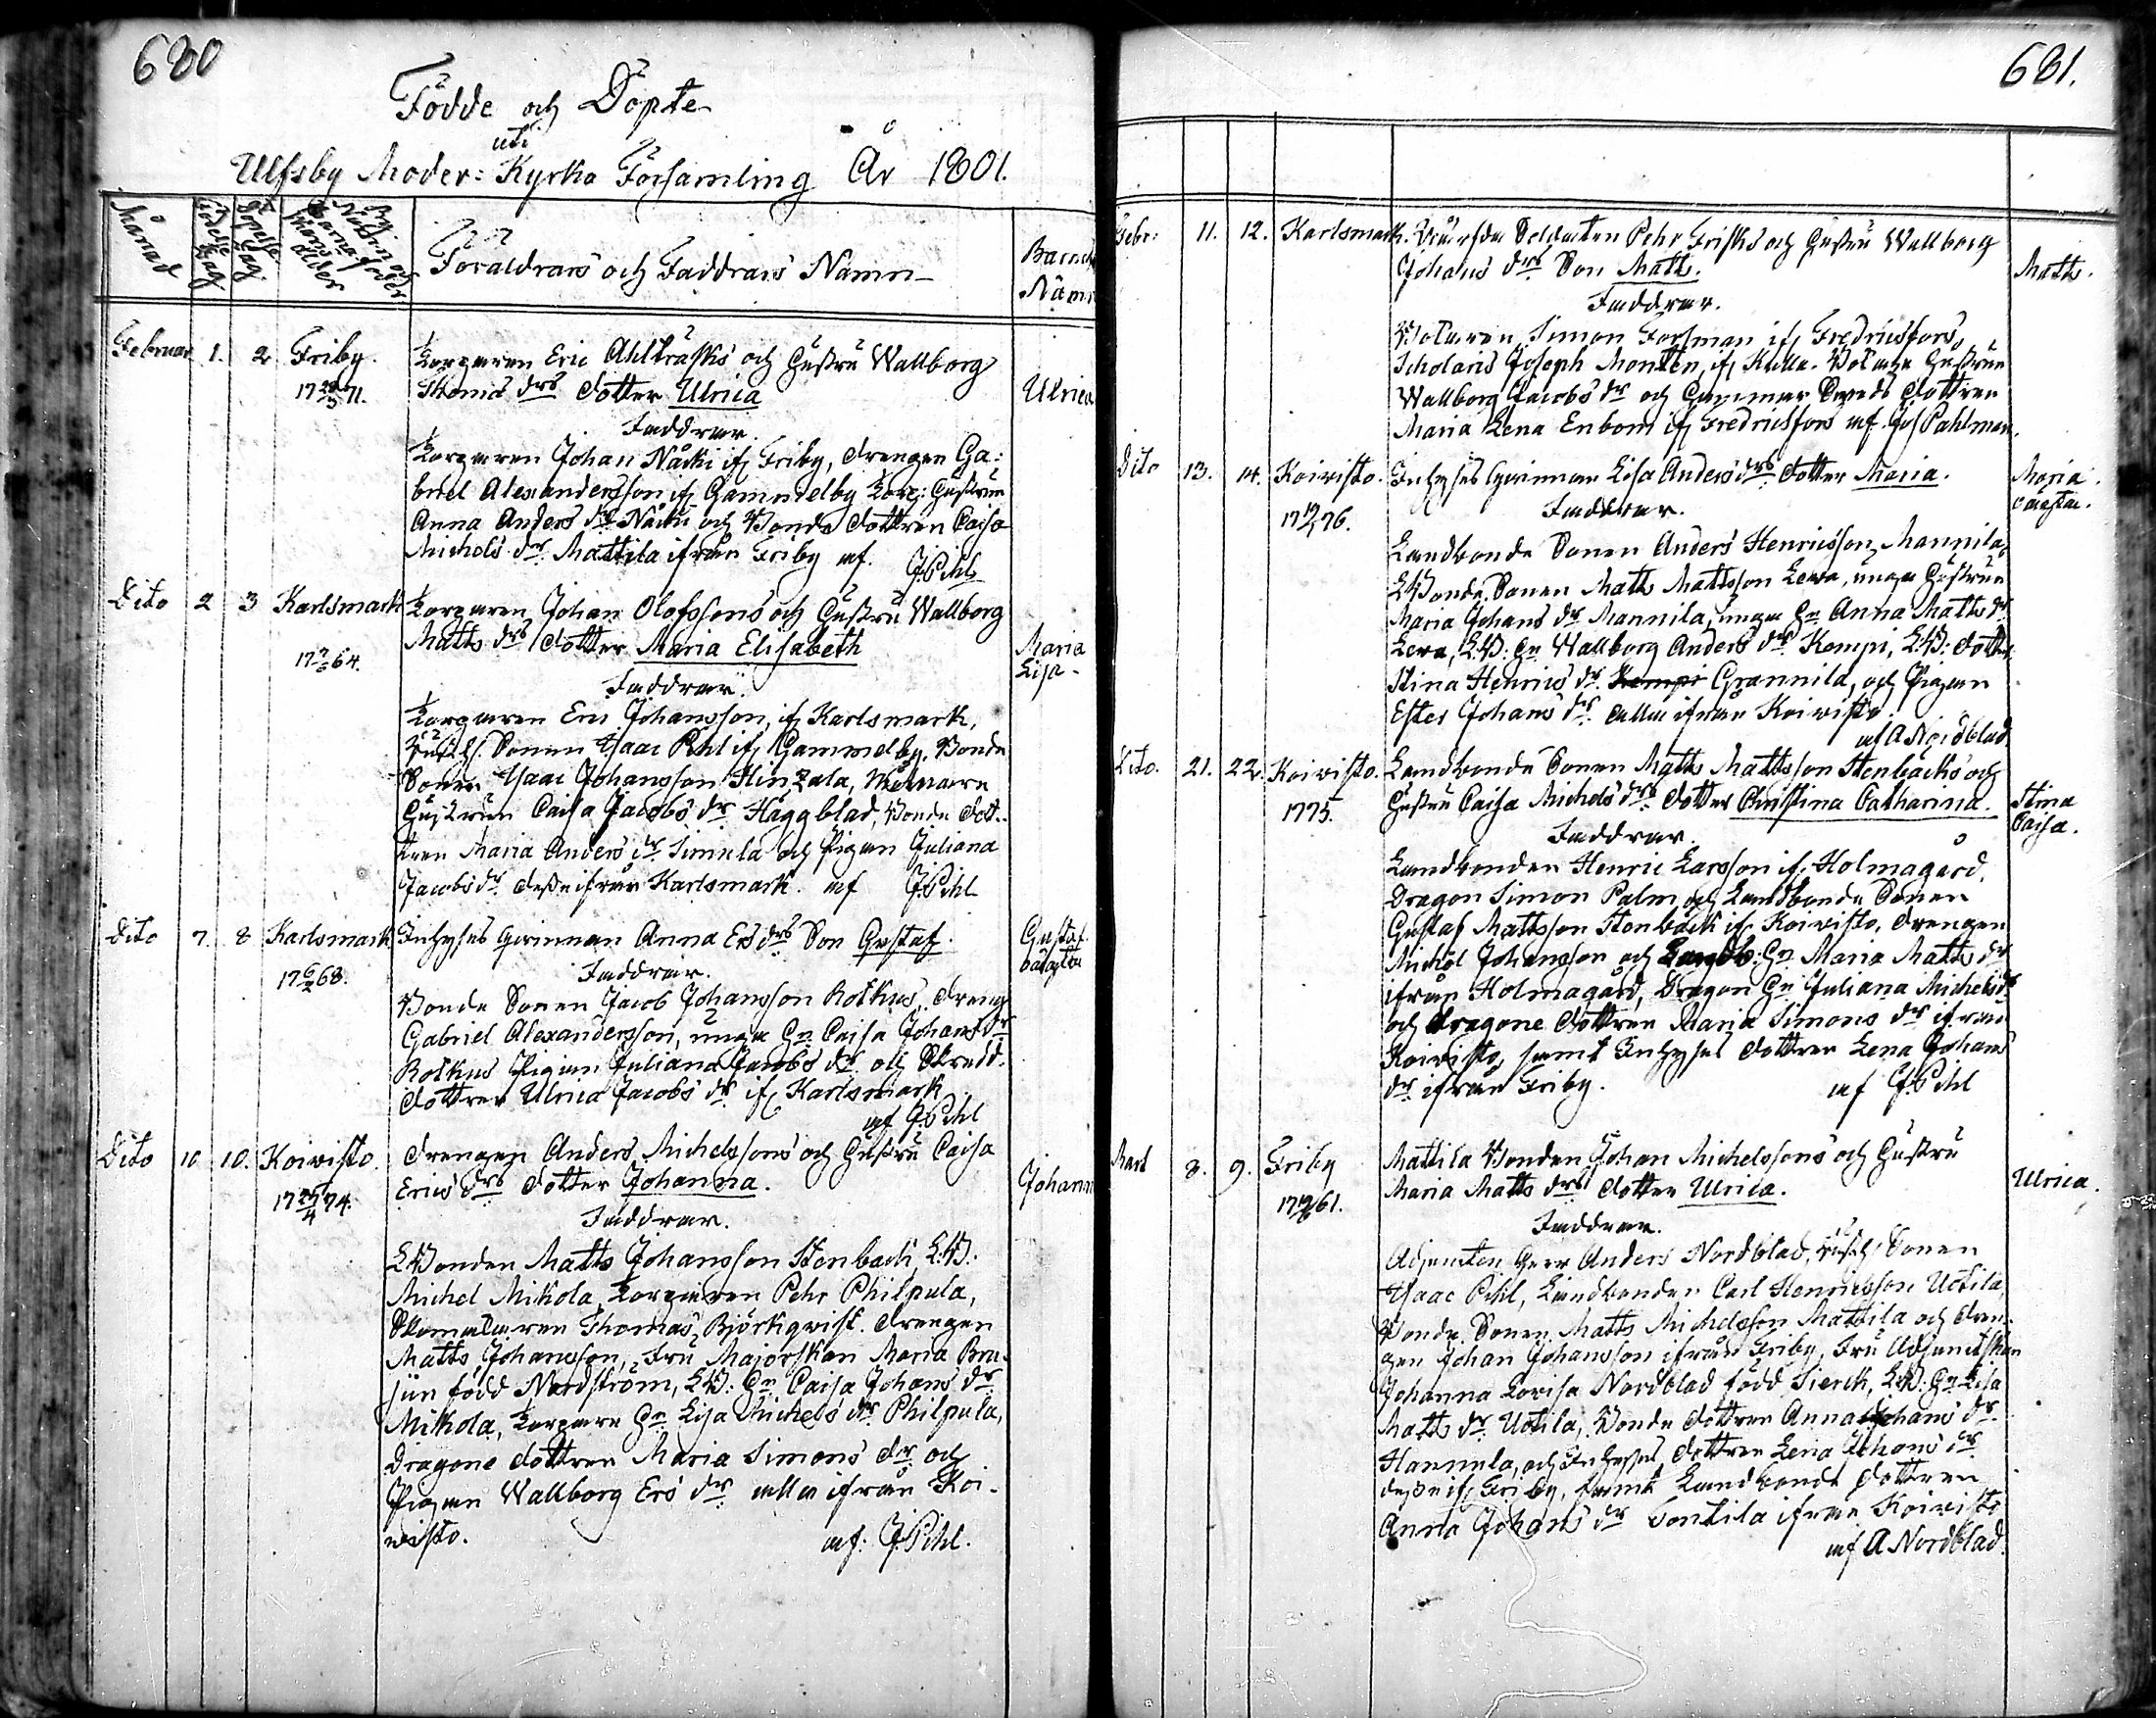 680
Födde och Döpte
uti
Ulfsby Moder: Kyrko Församling År 1801.
Månad
Födelse Dag
Döpelse Dag
Föräldrars och Faddrars Namn
Barnets
Namn
Februar. 1. 2. Friby. Torparen Eric Ahlträsks och Hustru Wallborg
Thoms drs dotter Ulrica
Ulrica
Faddrar.
Torparen Johan Näcki if. Friby, drengen Ga:
briel Alexandersson if. Gammelby Torp: Hustrun
Anna Anders dr Näcki och Bonde dottren Caisa
Michels dr Mattila ifrån Friby af. J. Pihl
Dito 2 3 Karlsmark Torparen Johan Olofssons och Hustru Wallborg
Matts drs dotter Maria Elisabeth
17 64.
Maria
Lisa
Faddrar.
Torparen Eric Johansson, if. Karlsmark,
Sonen Isaac Pihl if. Gammelby, Bonde
Sonen Isaac Johansson Hinzala,
Hustrun Caisa Jacobs dr Häggblad, Bonde dot-
tren Maria Anders dr Simula och Pigan Juliana
Jacobs dr desse ifrån Karlsmark. af J. Pihl
Dito 7. 8 Karlsmark Inhyses Qwinnan Anna Ers drs Son Gustaf.
17 68.
Gustaf
oäckta
Faddrar.
Bonde Sonen Jacob Johansson Rotkus, dreng
Gabriel Alexandersson, unga Hn Caisa Johans dr
Rotkus Pigan Juliana Jacobs dr och
dottren Ulrica Jacobs dr if. Karlsmark
af J. Pihl
Dito 10 10. Koivisto. drengen Anders Michelssons och Hustru Caisa
Erics drs dotter Johanna.
17 74.
Johann
Faddrar.
L.Bonden Matts Johansson Stenback, L.B.
Michel Mikola, Torparen Pehr Philpula,
Skomakaren Thomas Björkqwist. drengen
Matts Johansson, Fru Majorskan Maria Bru-
siin född Nordström, L.B: Hn Caisa Johans dr
Mikola, Torpare Hn Lisa Michels dr Philpula,
Dragone dottren Maria Simons dr och
Pigan Wallborg Ers dr alla ifrån Koi-
visto. af: J. Pihl.
681.
Febr: 11. 12. Karlsmark. Soldaten Pehr Frisks och Hustru Wallborg
Johans drs Son Matts.
Matts.
Faddrar.
Simon Forsman if Fredricsfors,
Scholaris Joseph Monten, if. Kulla. Hustrun
Wallborg Jacobs dr och dottren
Maria Lena Enbom if Fredricsfors af. Jos Pahlman.
Dito 13. 14. Koivisto. Inhyses Qwinnan Lisa Anders drs dotter Maria.
17 76.
Maria
oäckta.
Faddrar.
Landbonde Sonen Anders Henricsson Mannila,
L.Bonde Sonen Matts Mattsson Lewa, unga Hustrun
Maria Johans dr Mannila, unga Hn Anna Matts dr
Lewa, L.B: Hn Wallborg Anders dr Kempi, L.B: dottr
Stina Henrics dr Kempi Grannila, och Pigan
Ester Johans dr alla ifrån Koivisto.
af A Nordblad.
Dito. 21. 22. Koivisto. Landbonde Sonen Matts Mattsson Stenbacks och
Hustru Caisa Michels drs dotter Christina Catharina.
1775.
Stina
Caisa.
Faddrar.
Landbonden Henric Larsson if. Holmagård,
Dragon Simon Palm och Landbonde Sonen
Gustaf Mattsson Stenback if. Koivisto, drengen
Michel Johansson och Landb: Hn Maria Matts dr
ifrån Holmagård, Dragon Hn Juliana Michels dr
och dragone dottren Maria Simons dr ifrån
Koivisto, samt Inhyses dottren Lena Johans
dr ifrån Friby. af J. Pihl
Mart 8. 9. Friby Mattila Bonden Johan Michelssons och Hustru
Maria Matts drs dotter Ulrica.
17 61.
Ulrica.
Faddrar.
Adjuncten Herr Anders Nordblad, Sonen
Isaac Pihl, Landbonden Carl Henricsson Uotila,
Bonde Sonen Matts Michelsson Mattila och dren-
gen Johan Johansson ifrån Friby, Fru Adjunctskan
Johanna Lovisa Nordblad född Sierck, L.B: Hn Lisa
Matts dr Uotila, Bonde dottren Anna Johans dr
Hannula, och Inhyses dottren Lena Johans dr
desse if. Friby, samt Landbonde dottren
Anna Johans dr Sontila ifrån Koivisto
af A Nordblad.